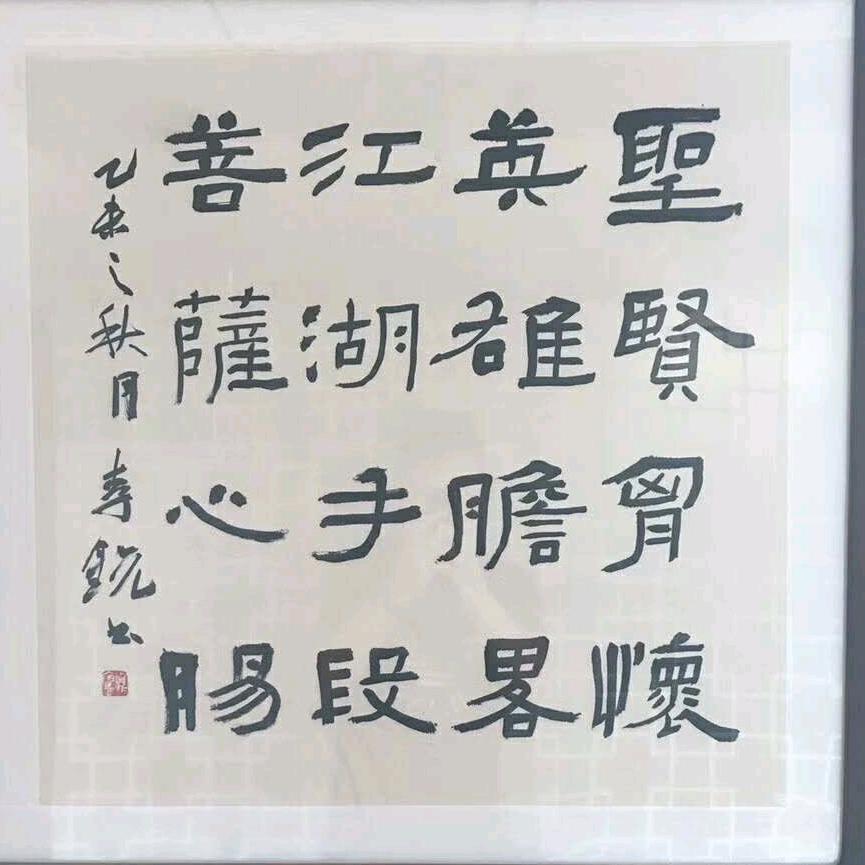 聖賢胷懷
英雄膽畧
江湖手段
菩薩心腸
乙未之秋月李銳书